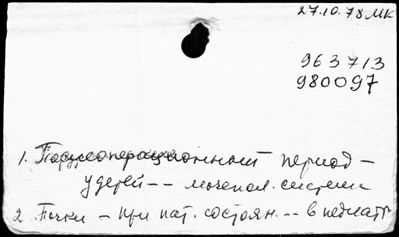 27.10.78 МК
963713
980097
1. Послеоперационный период –
у детей -- мочепол. системы
2 Почки – при пат. состоян. -- в педиатр